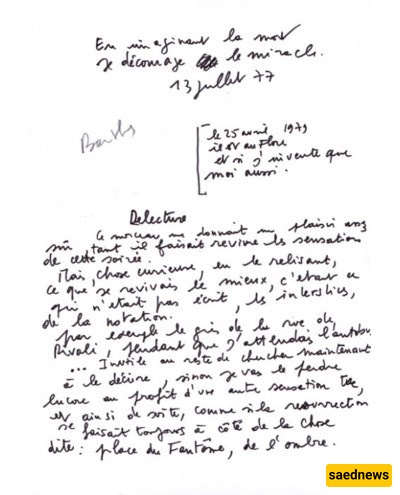 En imaginant la mort
je décourage le miracle.
13 juillet 77
Barthes
le 25 avril 1979
il est au Flore
et si j'invente que
moi aussi.
Delecture
Ce morceau me donnait un plaisir assez
sûr, tant il faisait revivre les sensations
de cette soirée.
Mais, chose curieuse, en le relisant,
ce que je revivais le mieux, c'était ce
qui n'était pas écrit, les interstices,
de la notation.
par exemple le gris de la rue de
Rivoli, pendant que j'attendais l'autobus.
... Inutile au reste de chercher maintenant
à le décrire, sinon je vais le perdre
encore au profit d'une autre sensation tue,
et ainsi de suite, comme si la resurrection
se faisait toujours à côté de la chose
dite: place du Fantôme, de l'ombre.
saednews